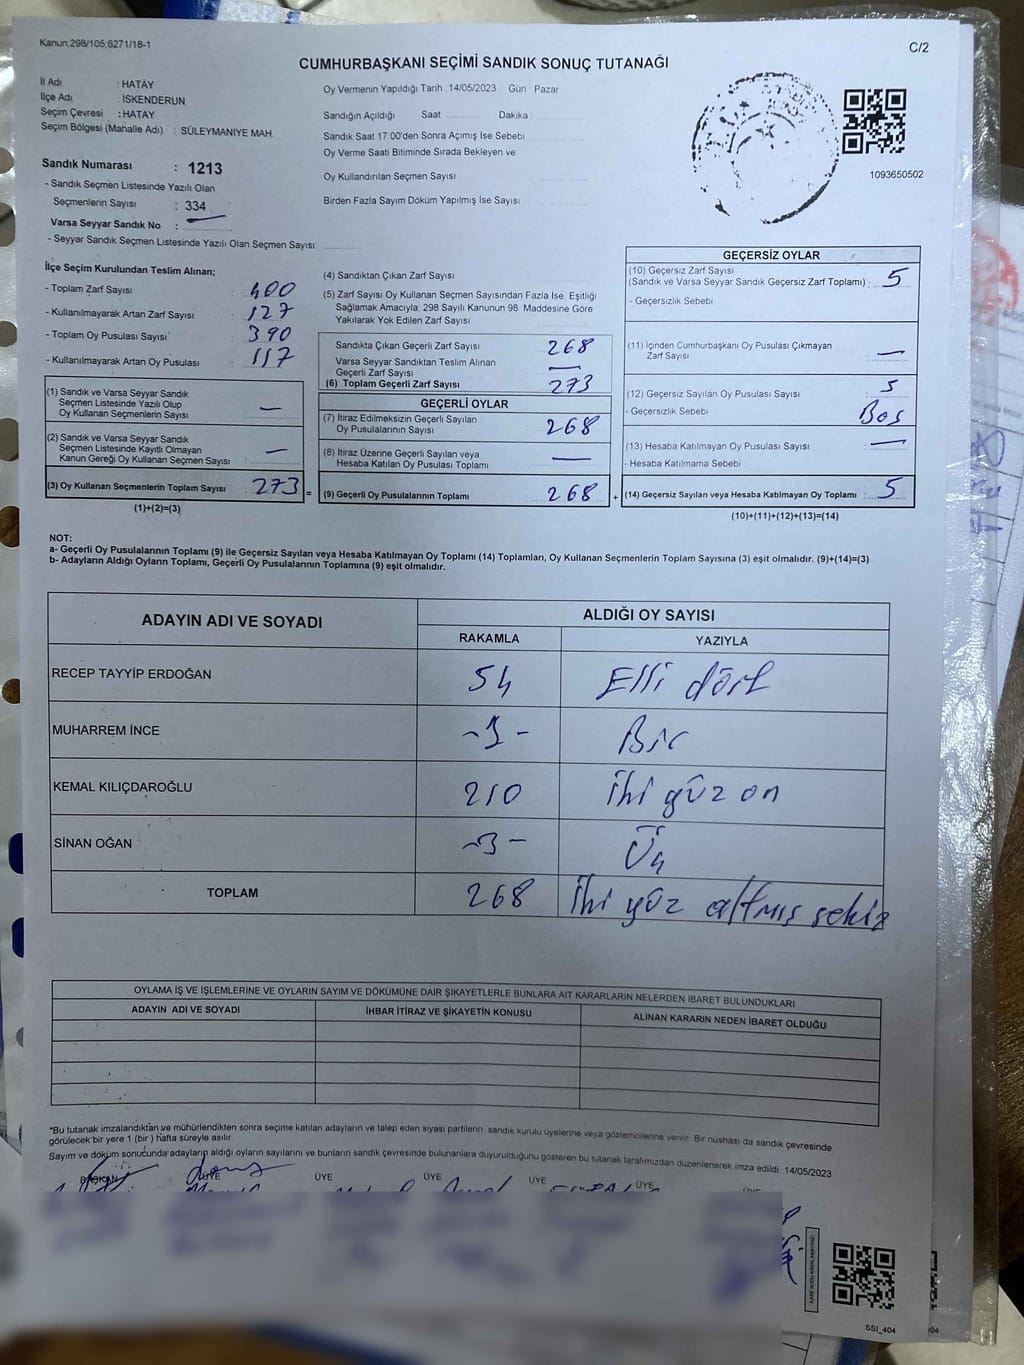 Kanun.298/105,6271/18-1
C/2
CUMHURBAŞKANI SEÇİMİ SANDIK SONUÇ TUTANAĞI
İl Adı : HATAY
İlçe Adı : İSKENDERUN
Seçim Çevresi : HATAY
Seçim Bölgesi (Mahalle Adı) : SÜLEYMANİYE MAH.
Sandık Numarası : 1213
- Sandık Seçmen Listesinde Yazılı Olan
Seçmenlerin Sayısı : 334
Varsa Seyyar Sandık No : —
- Seyyar Sandık Seçmen Listesinde Yazılı Olan Seçmen Sayısı:
Oy Vermenin Yapıldığı Tarih 14/05/2023 Gün Pazar
Sandığın Açıldığı Saat Dakika
Sandık Saat 17:00'den Sonra Açılmış İse Sebebi
Oy Verme Saati Bitiminde Sırada Bekleyen ve
Oy Kullandırılan Seçmen Sayısı
Birden Fazla Sayım Döküm Yapılmış İse Sayısı
1093650502
İlçe Seçim Kurulundan Teslim Alınan;
- Toplam Zarf Sayısı : 400
- Kullanılmayarak Artan Zarf Sayısı : 127
- Toplam Oy Pusulası Sayısı : 390
- Kullanılmayarak Artan Oy Pusulası : 117
(1) Sandık ve Varsa Seyyar Sandık
Seçmen Listesinde Yazılı Olup
Oy Kullanan Seçmenlerin Sayısı : —
(2) Sandık ve Varsa Seyyar Sandık
Seçmen Listesinde Kayıtlı Olmayan
Kanun Gereği Oy Kullanan Seçmen Sayısı : —
(3) Oy Kullanan Seçmenlerin Toplam Sayısı : 273 =
(1)+(2)=(3)
(4) Sandıktan Çıkan Zarf Sayısı
(5) Zarf Sayısı Oy Kullanan Seçmen Sayısından Fazla İse, Eşitliği
Sağlamak Amacıyla, 298 Sayılı Kanunun 98. Maddesine Göre
Yakılarak Yok Edilen Zarf Sayısı
Sandıkta Çıkan Geçerli Zarf Sayısı 268
Varsa Seyyar Sandıktan Teslim Alınan
Geçerli Zarf Sayısı —
(6) Toplam Geçerli Zarf Sayısı 273
GEÇERLİ OYLAR
(7) İtiraz Edilmeksizin Geçerli Sayılan
Oy Pusulalarının Sayısı : 268
(8) İtiraz Üzerine Geçerli Sayılan veya
Hesaba Katılan Oy Pusulası Toplamı —
(9) Geçerli Oy Pusulalarının Toplamı : 268 +
GEÇERSİZ OYLAR
(10) Geçersiz Zarf Sayısı
(Sandık ve Varsa Seyyar Sandık Geçersiz Zarf Toplamı) : 5
- Geçersizlik Sebebi
(11) İçinden Cumhurbaşkanı Oy Pusulası Çıkmayan
Zarf Sayısı —
(12) Geçersiz Sayılan Oy Pusulası Sayısı : 5
- Geçersizlik Sebebi Boş
(13) Hesaba Katılmayan Oy Pusulası Sayısı —
- Hesaba Katılmama Sebebi
(14) Geçersiz Sayılan veya Hesaba Katılmayan Oy Toplamı : 5
(10)+(11)+(12)+(13)=(14)
NOT:
a- Geçerli Oy Pusulalarının Toplamı (9) ile Geçersiz Sayılan veya Hesaba Katılmayan Oy Toplamı (14) Toplamları, Oy Kullanan Seçmenlerin Toplam Sayısına (3) eşit olmalıdır. (9)+(14)=(3)
b- Adayların Aldığı Oyların Toplamı, Geçerli Oy Pusulalarının Toplamına (9) eşit olmalıdır.
ADAYIN ADI VE SOYADI
ALDIĞI OY SAYISI
RAKAMLA YAZIYLA
RECEP TAYYİP ERDOĞAN 54 Elli dört
MUHARREM İNCE -1- Bir
KEMAL KILIÇDAROĞLU 210 iki yüz on
SİNAN OĞAN -3- Üç
TOPLAM 268 iki yüz altmış sekiz
OYLAMA İŞ VE İŞLEMLERİNE VE OYLARIN SAYIM VE DÖKÜMÜNE DAİR ŞİKAYETLERLE BUNLARA AİT KARARLARIN NELERDEN İBARET BULUNDUKLARI
ADAYIN ADI VE SOYADI İHBAR İTİRAZ VE ŞİKAYETİN KONUSU ALINAN KARARIN NEDEN İBARET OLDUĞU
*Bu tutanak imzalandıktan ve mühürlendikten sonra seçime katılan adayların ve talep eden siyasi partilerin sandık kurulu üyelerine veya gözlemcilerine verilir. Bir nüshası da sandık çevresinde
görülecek bir yere 1 (bir) hafta süreyle asılır.
Sayım ve döküm sonucunda adayların aldığı oyların sayılarını ve bunların sandık çevresinde bulunanlara duyurulduğunu gösteren bu tutanak tarafımızdan düzenlenerek imza edildi. 14/05/2023
BAŞKAN ÜYE ÜYE ÜYE ÜYE ÜYE
SSI_404